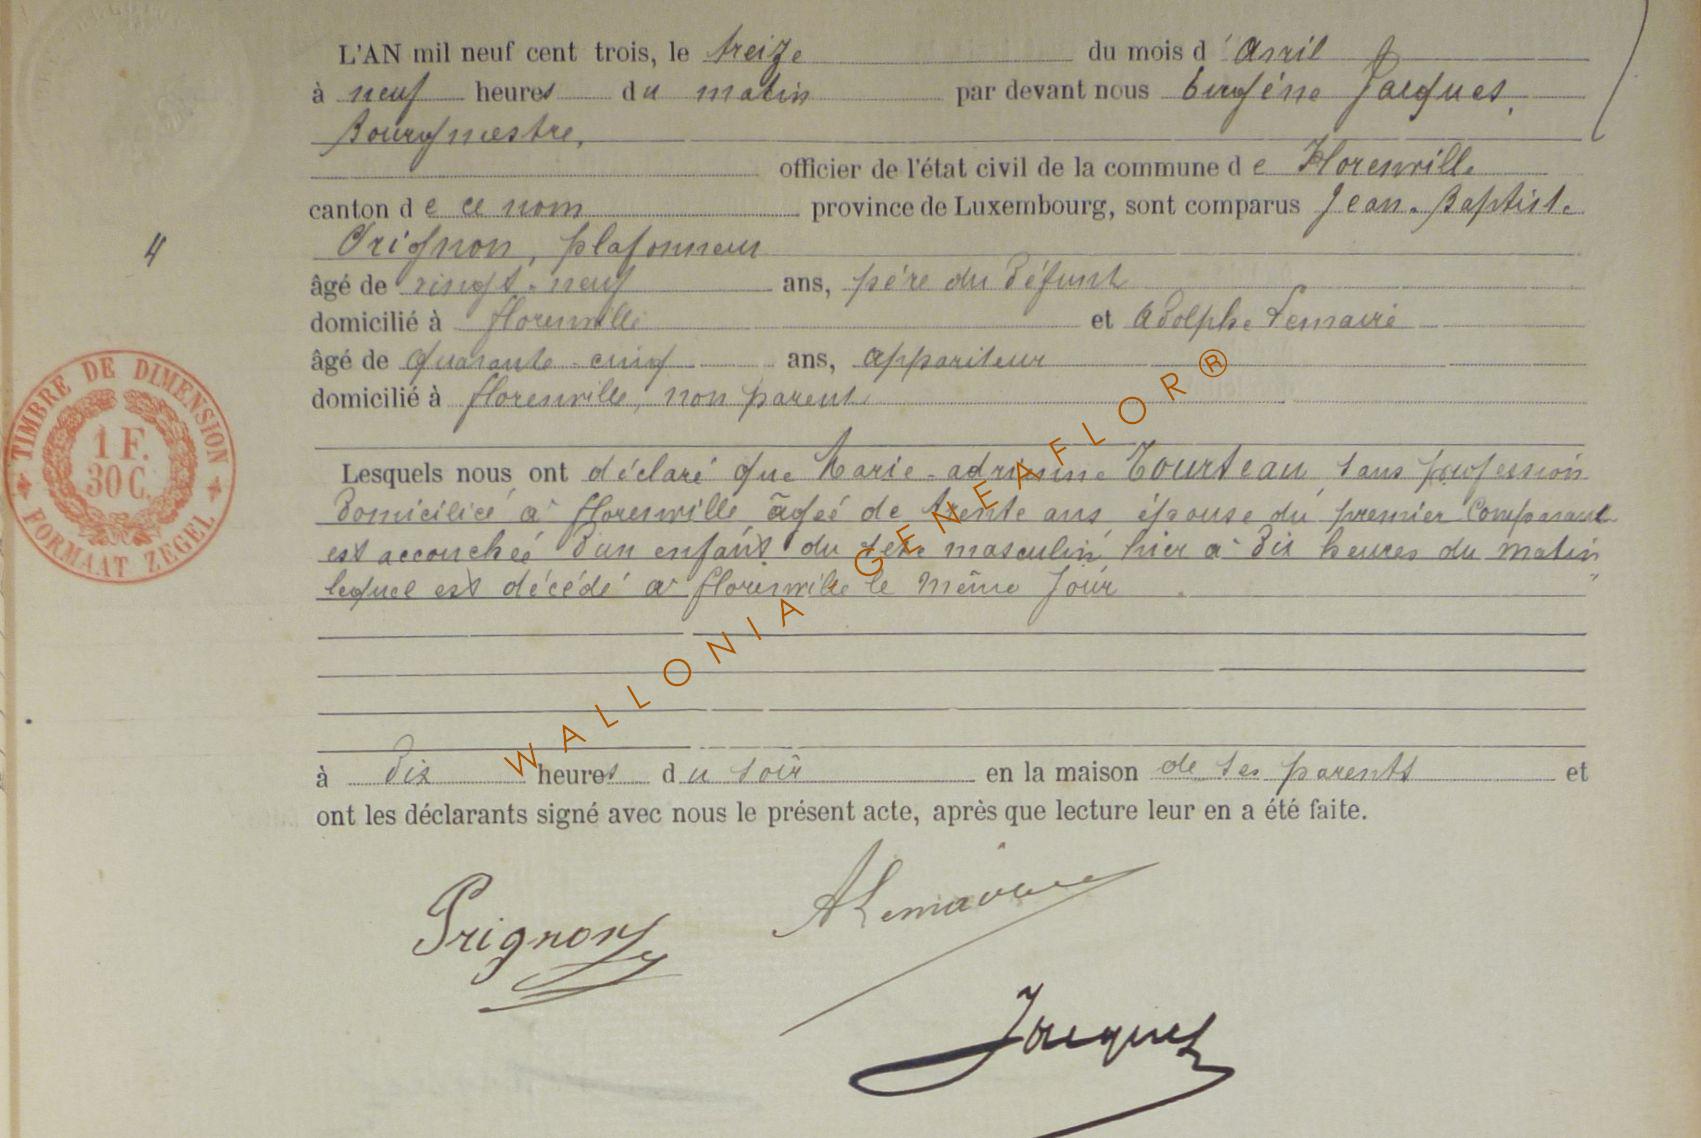 L'AN mil neuf cent trois, le treize du mois d'avril
à neuf heures du matin par devant nous Eugène Jacques,
Bourgmestre,
officier de l'état civil de la commune de Florenville
canton de ce nom province de Luxembourg, sont comparus Jean-Baptiste
Prignon, plafonneur
4
âgé de vingt-neuf ans, père du défunt
domicilié à florenville et Adolphe Lemaire
âgé de quarante-cinq ans, appariteur
domicilié à florenville, non parent
Lesquels nous ont déclaré que Marie-adrienne Tourteau, sans profession
domiciliée à florenville, âgée de trente ans, épouse du premier Comparant
est accouchée d'un enfant du sexe masculin, hier à dix heures du matin
lequel est décédé à florenville le même jour
à dix heures du soir en la maison de ses parents et
ont les déclarants signé avec nous le présent acte, après que lecture leur en a été faite.
Prignon ALemaire
Jacques
TIMBRE DE DIMENSION
1 F.
30 C.
FORMAAT ZEGEL
WALLONIA GENEAFLOR®